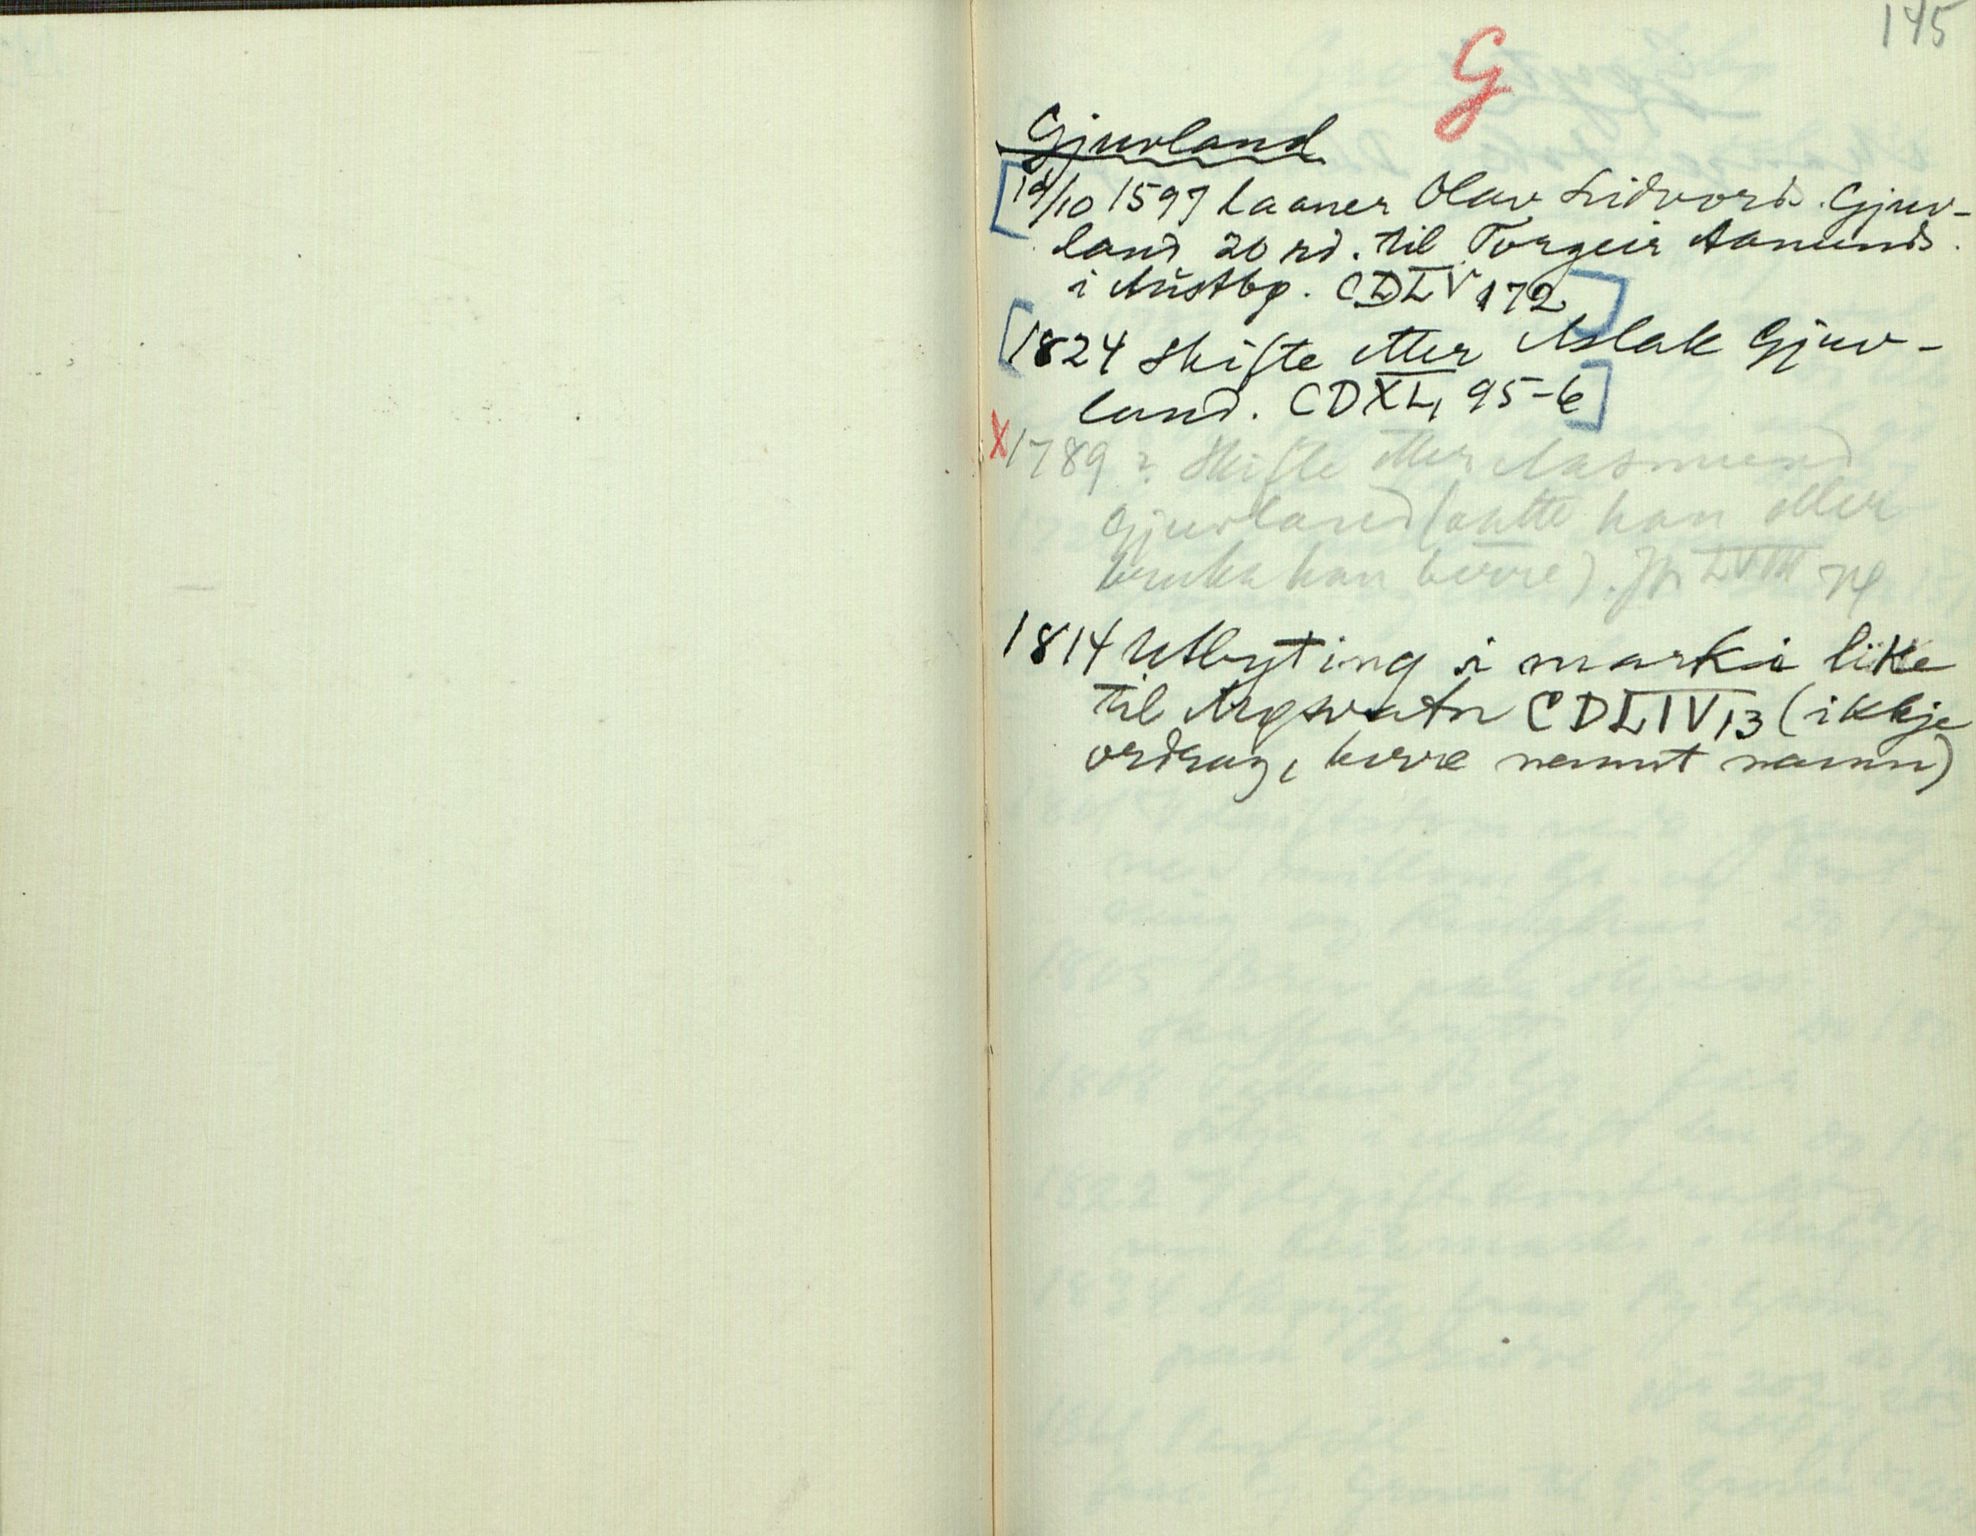 145
G
Gjuvland
19/10 1597 laaner Olav Lidvords. Gjuv-
land 20 rd. til Torgeir Aamunds.
i Austbg. CDLV 172
1824 Skifte etter Aslak Gjuv-
land. CDXL, 95-6
X 1789 ? Skifte etter Aasmund
Gjuvland (aatte han eller
bruka han berre). Jfr LVIII 74
1814 Utbyting i marki like
til Argevatn CDLIV, 13 (ikkje
ordrag, berre nemnt namn)